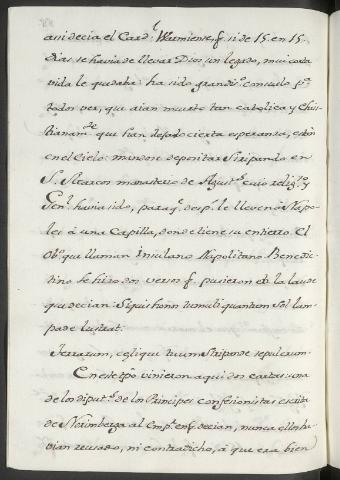 asi decia el Card.l Warmiense, q. si de 15. en 15.
dias se havia de llevar Dios un legado, mui corta
vida le quedaba: ha sido grandis.o consuelo p.a
todos ver, que aian muerto tan catolica y Chris
tianam.te que han dejado cierta esperanza, estàn
en el Cielo: mandose depositar Siripando en
S. Marcos monasterio de Agust.s cuio relig.so y
Gen.l havia sido, para q. desp.s le lleven à Napo
les à una Capilla, donde tiene su entierro. El
Ob.po que llaman Insulano Napolitano Benedic
tino se hizo dos versos q. pusieron en la laude
que decian: Siquis honn tumuli quantum Sol lam-
pade lustrat.
Terrarum, celique tuum Stripande sepulcrum.
En este tpõ vinieron aqui dos cartas: una
de los diput.s de los Principes confesionistas escrita
de Norimberga al Emp.r en q. decian, nunca ellos ha
vian reusado, ni contradicho, à que era bien